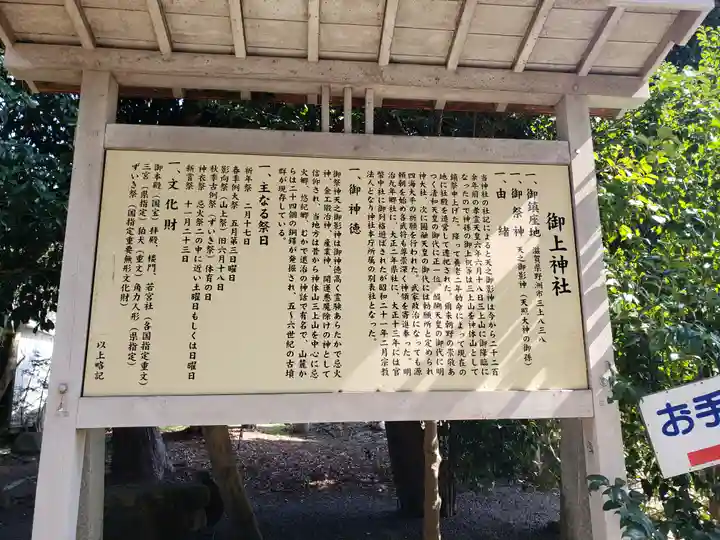 御上神社
一、御鎮座地　滋賀県野洲市三上八三八
一、御祭神　天之御影神（天照大神の御孫）
一、由緒
当神社の社記によると天之御影神は今から二千二百
余年前の孝霊天皇六年六月十八日三上山に御降臨に
なったので神孫の御上祝等は三上山を神体山として
鎮祭申上げた。降って養老二年勅命によって現在の
地に社殿を造営して遷祀された。爾来朝野の崇敬あ
つく清和天皇の御代に正一位、醍醐天皇の御代に明
神大社、次に円融天皇の御代には勅願所と定められ
四海太平の祈願を行われた。武家政治になっても源
頼朝を始め各武将も尊崇深く神領を寄進奉った。明
治九年郷社に、大正十三年県社に、大正十三年には官
幣中社に御列格遊ばされたが昭和二十一年二月宗教
法人となり神社本庁所属の別表社となった。
一、御神徳
御祭神天之御影神は御神徳高く霊験あらたかで忌火
神、金工鍛冶神、産業神、開運悪魔除けの神として
信仰され、当地方は昔から神体山三上山を中心に忌
火郷、悠紀郷、むかで退治の神話で有名で、山麓か
らは二十四個の銅鐸が発掘され、五～六世紀の古墳
群が現存している。
一、主なる祭日
祈年祭　二月十七日
春季例大祭　五月第三日曜日
影向祭（山上祭）旧六月十八日
秋季古例祭（ずいき祭）体育の日
神衣祭　忌火祭二の中に近い土曜日もしくは日曜日
新嘗祭　十一月二十三日
一、文化財
御本殿（国宝）拝殿、楼門、若宮社（各国指定重文）
三宮（県指定）狛犬（重文）角力人形（県指定）
ずいき祭（国指定重要無形文化財）
以上略記
お手